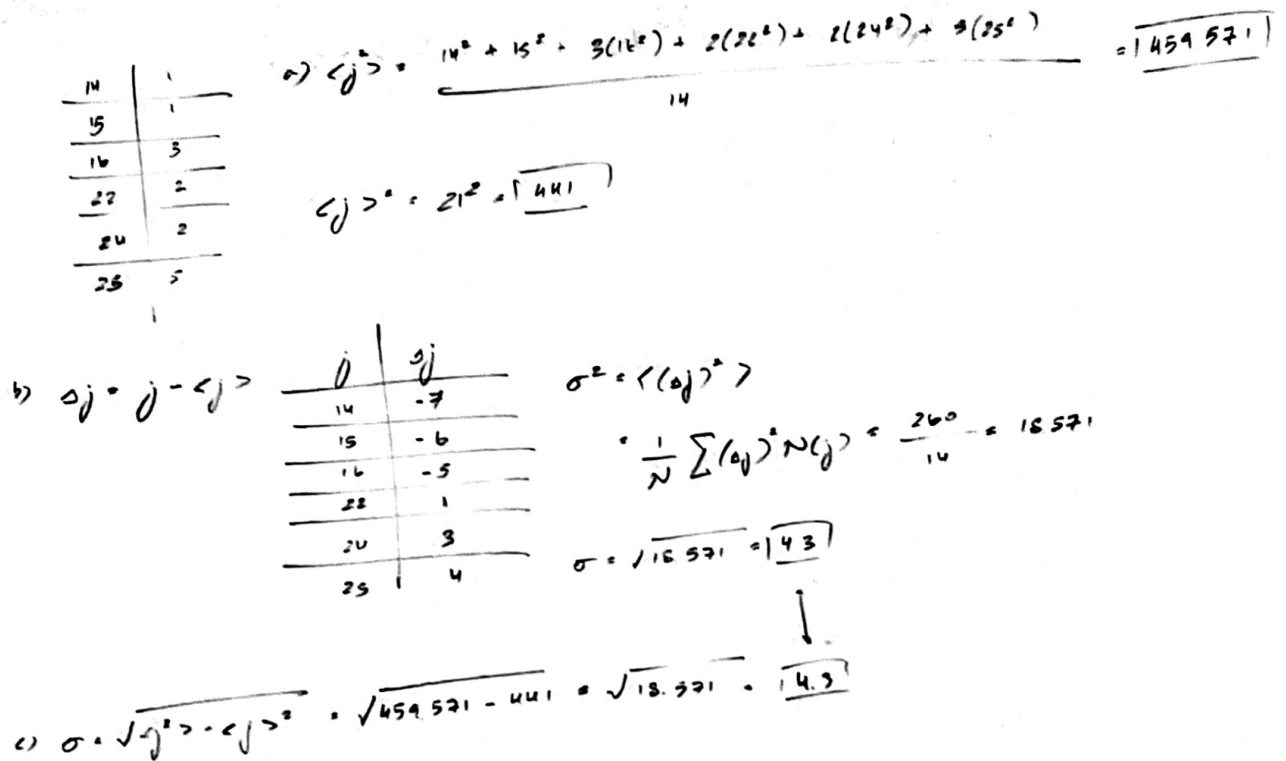 14 | 1
15 | 1
16 | 3
22 | 2
24 | 2
25 | 5
a) <j²> = (14² + 15² + 3(16²) + 2(22²) + 2(24²) + 5(25²)) / 14 = 459.571
<j>² = 21² = 441
b) Δj = j - <j>
j | Δj
14 | -7
15 | -6
16 | -5
22 | 1
24 | 3
25 | 4
σ² = <(Δj)²>
= 1/N Σ(Δj)² N(j) = 260/14 = 18.571
σ = √18.571 = 4.3
c) σ = √<j²> - <j>² = √459.571 - 441 = √18.571 = 4.3